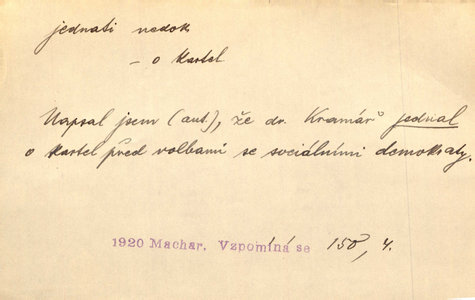 jednati nedok
– o kartel
Napsal jsem (aut.), že dr. Kramář jednal
o kartel před volbami se sociálními demokraty.
1920 Machar. Vzpomíná se 150, 4.